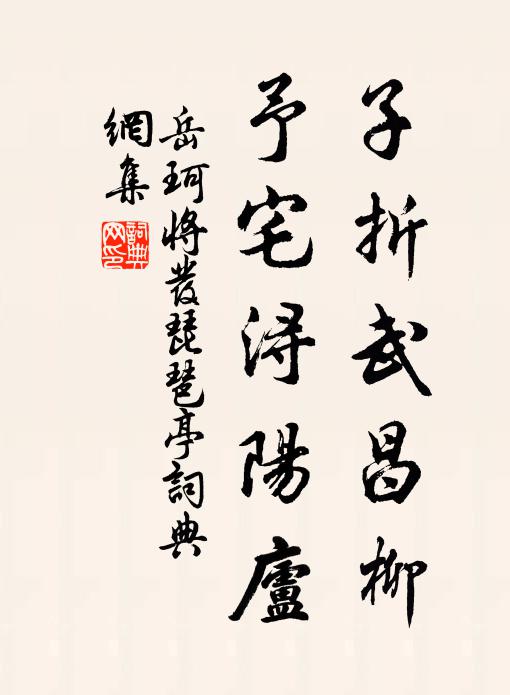 子折武昌柳
予宅潯陽廬
岳珂將發琵琶亭詞典
網集
詞典網印